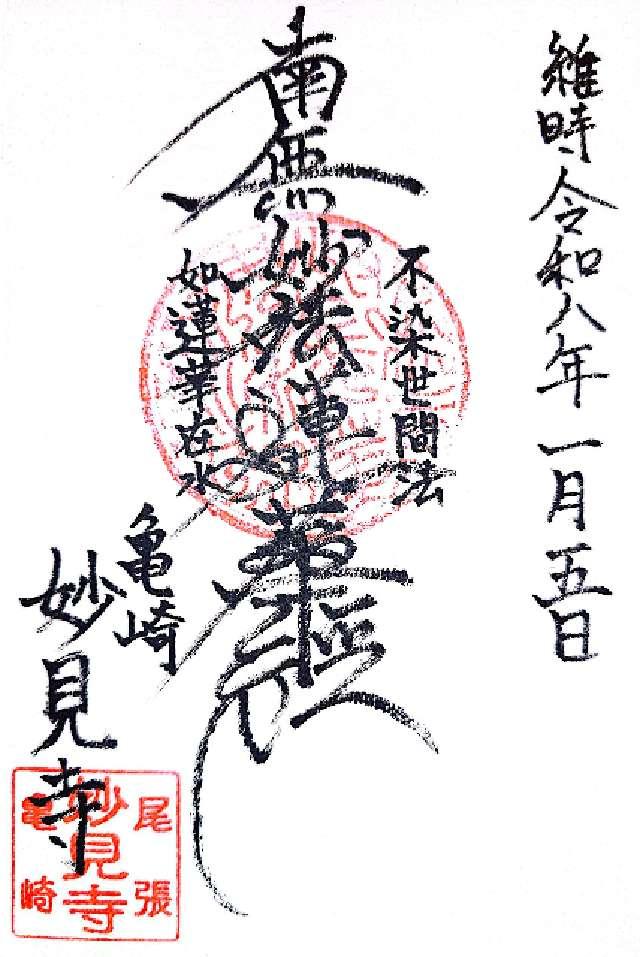 維時令和八年一月五日
不染世間法
南無妙法蓮華経
如蓮華在水
亀崎
妙見寺
尾張
妙見寺
亀崎